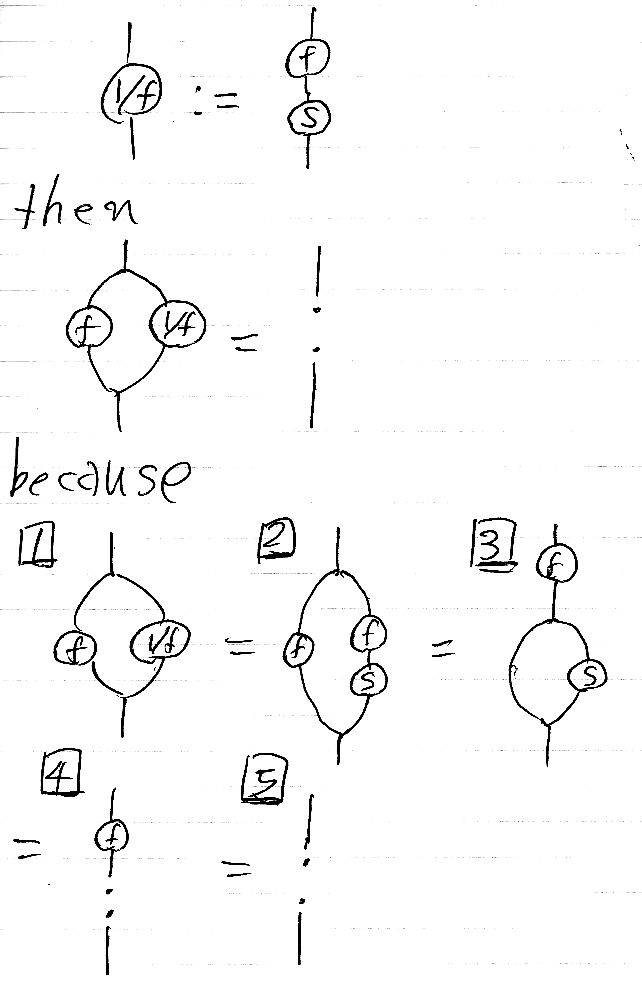 1/f := f
s
then
f 1/f =
because
1 2 3
f
f 1/f = f f =
s s
4 5
= f =